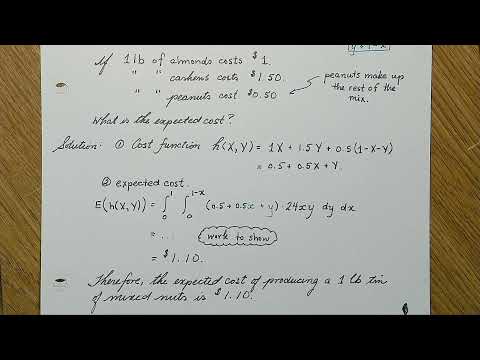 y = 1 - x
If 1 lb of almonds costs $1.
" " cashews costs $1.50.
" " peanuts cost $0.50
peanuts make up
the rest of the
mix.
What is the expected cost?
Solution: ① Cost function h(X,Y) = 1X + 1.5Y + 0.5(1-X-Y)
= 0.5 + 0.5X + Y.
② expected cost.
E(h(X,Y)) = ∫₀¹ ∫₀¹⁻ˣ (0.5 + 0.5x + y) · 24xy dy dx
= ... work to show
= $1.10.
Therefore, the expected cost of producing a 1 lb tin
of mixed nuts is $1.10.